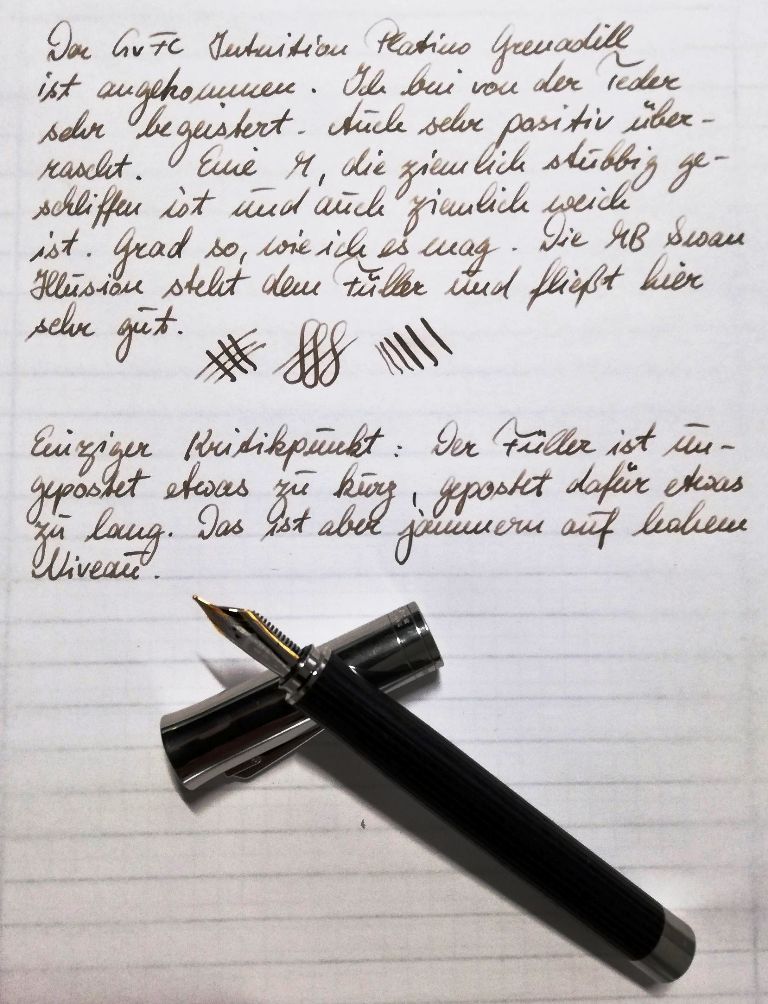 Der GvFC Intuition Platino Grenadill
ist angekommen. Ich bin von der Feder
sehr begeistert. Auch sehr positiv über-
rascht. Eine M, die ziemlich stubbig ge-
schliffen ist und auch ziemlich weich
ist. Grad so, wie ich es mag. Die MB Swan
Illusion steht dem Füller und fließt hier
sehr gut.
Einziger Kritikpunkt: Der Füller ist un-
gepostet etwas zu kurz, gepostet dafür etwas
zu lang. Das ist aber jammern auf hohem
Niveau.